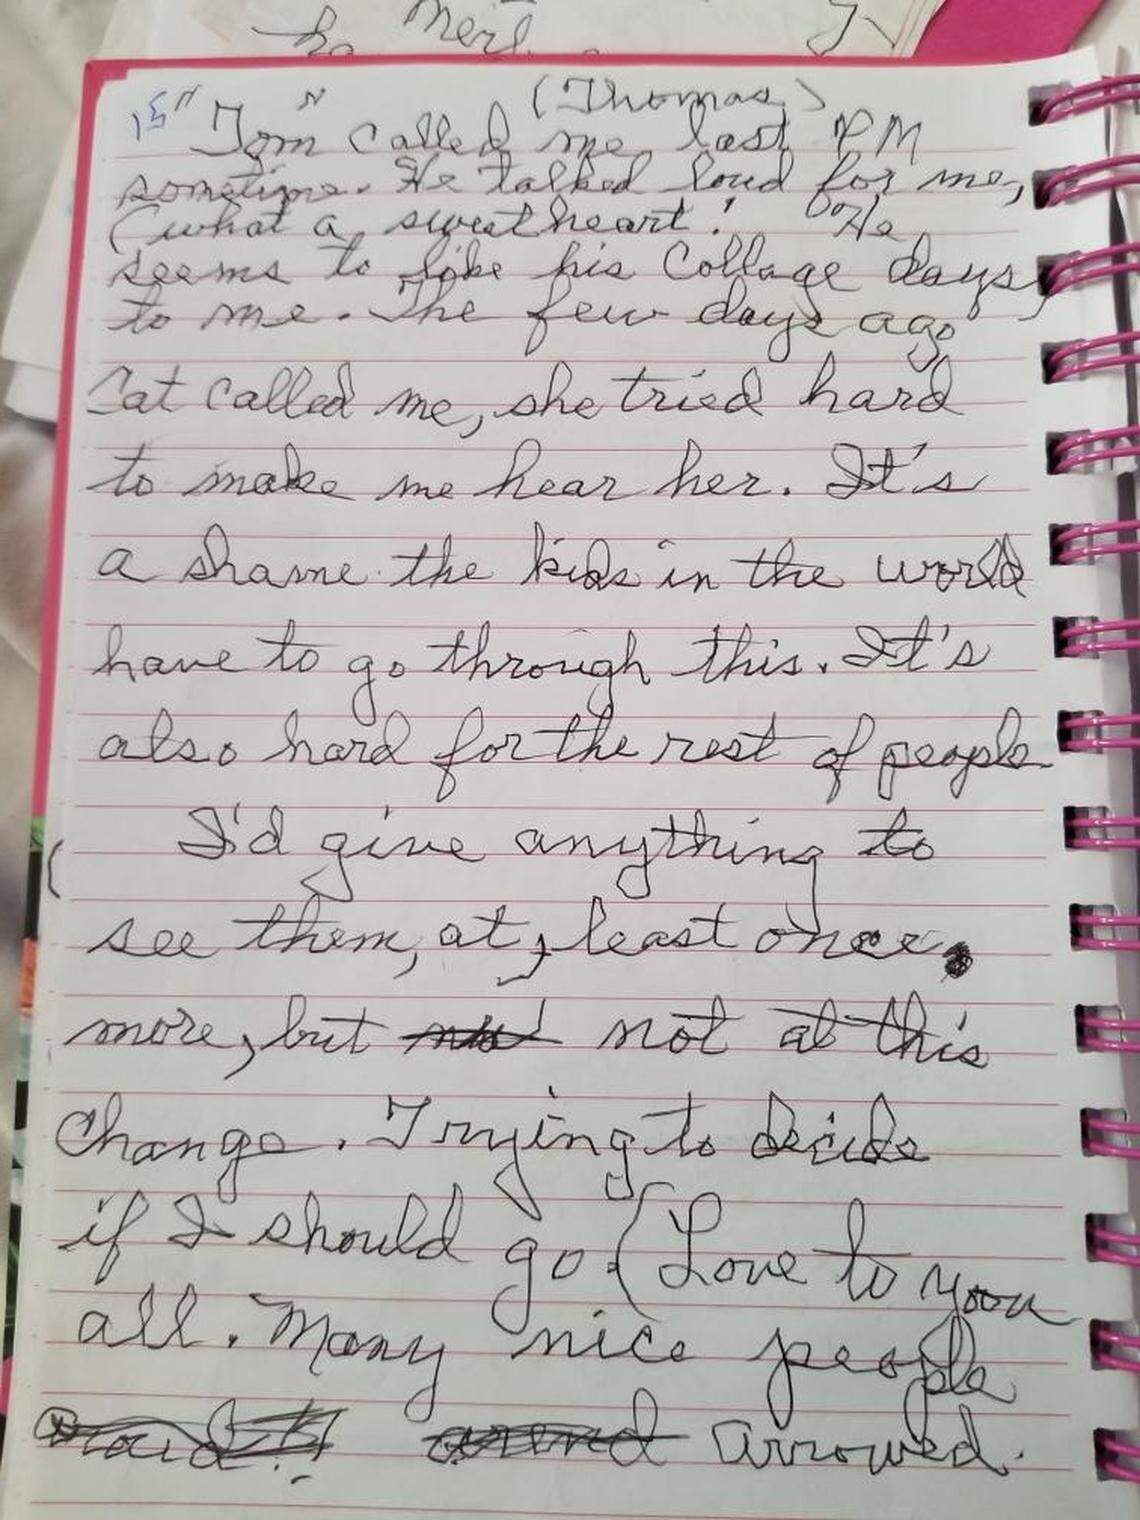 (Thomas)
15 "Tom" called me last PM
sometime. He talked loud for me,
(what a sweetheart! He
seems to like his Collage days
to me. The few days ago
Cat called me, she tried hard
to make me hear her. It's
a shame the kids in the world
have to go through this. It's
also hard for the rest of people
I'd give anything to
see them, at, least once,
more, but not at this
Change. Trying to decide
if I should go. (Love to you
all. Many nice people
arrowed.